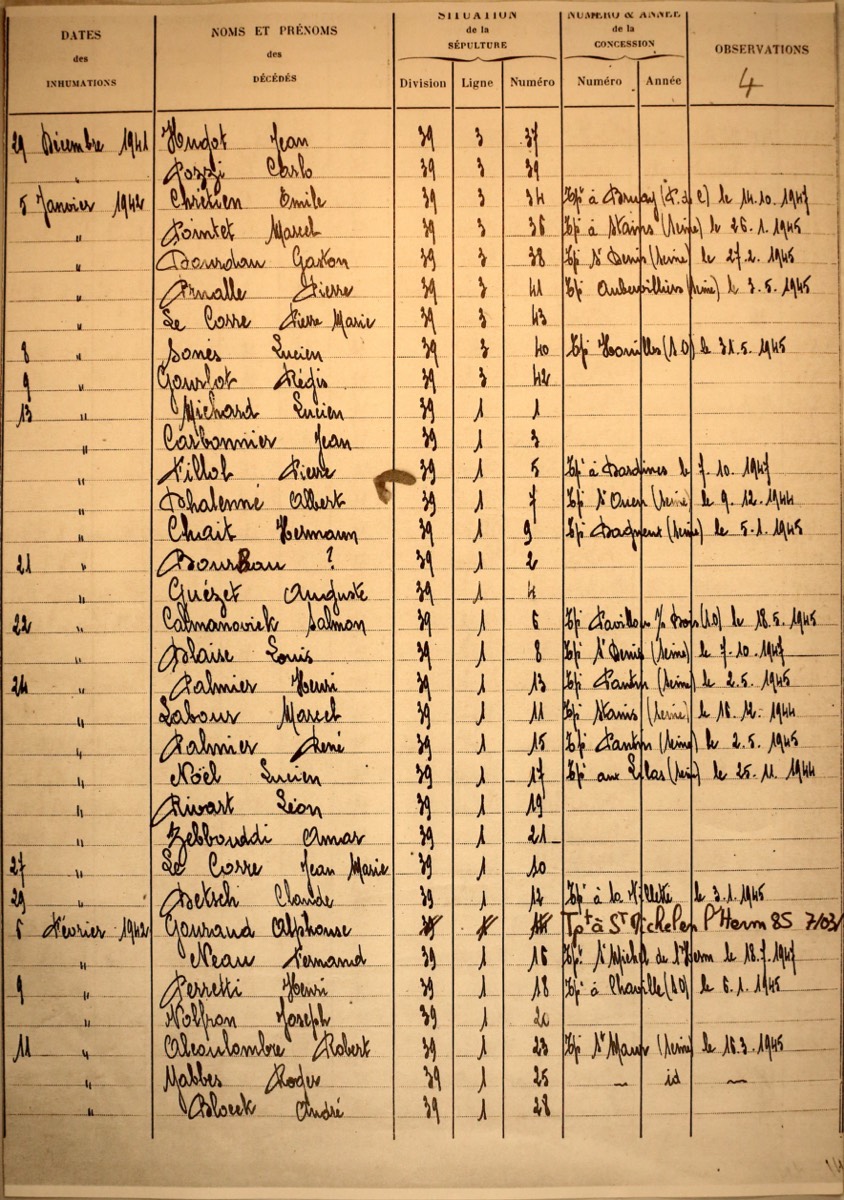 DATES des INHUMATIONS
NOMS ET PRÉNOMS des DÉCÉDÉS
SITUATION de la SÉPULTURE
NUMÉRO & ANNÉE de la CONCESSION
OBSERVATIONS
4
Division Ligne Numéro Numéro Année
29 Décembre 1941 Hudot Jean 39 3 37
" Pozzi Carlo 39 3 39
5 Janvier 1942 Chrétien Emile 39 3 34 Tpt à Bruay (P. de C) le 14.10.1947
" Pointet Marcel 39 3 36 Tpt à Stains (Seine) le 26.1.1945
" Bourdau Gaston 39 3 38 Tpt St Denis (Seine) le 27.2.1945
" Pierre 39 3 41 Tpt Aubervilliers (Seine) l 3.5.1945
" Le Corre Pierre Marie 39 3 43
8 " Sonès Lucien 39 3 40 Tpt Houilles (S.O) le 31.5.1945
9 " Gourlot Régis 39 3 42
13 " Michard Lucien 39 1 1
" Carbonnier Jean 39 1 3
" Fillol Pierre 39 1 5 Tpt à le 7.10.1947
" Dhalenne Albert 39 1 7 Tpt St Ouen (Seine) le 9.12.1944
" Chuait Hermann 39 1 9 Tpt Bagneux (Seine) le 5.1.1945
21 " ? 39 1 2
" Guézet Auguste 39 1 4
22 " Calmanovick Salmon 39 1 6 Tpt Pavillons s/ Bois (S.O) le 18.5.1945
" Blaise Louis 39 1 8 Tpt St Denis (Seine) le 7.10.1947
24 " Palmier Henri 39 1 13 Tpt Pantin (Seine) le 2.5.1945
" Labour Marcel 39 1 11 Tpt Stains (Seine) le 16.12.1944
" Palmier René 39 1 15 Tpt Pantin (Seine) le 2.5.1945
" Noël Lucien 39 1 17 Tpt aux Lilas (Seine) le 25.11.1944
" Rivart Léon 39 1 19
" Zebbouddi Amar 39 1 21
27 " Le Corre Jean Marie 39 1 10
29 " Betsch Claude 39 1 12 Tpt à la Villette le 3.1.1945
6 Février 1942 Gouraud Alphonse Tpt à St Michel en l'Herm 85 7/03/
" Neau Fernand 39 1 16 Tpt St Michel de l'Herm le 18.7.1947
9 " Perretti Henri 39 1 18 Tpt à Chaville (S.O) le 6.1.1945
" Nolfron Joseph 39 1 20
11 " Alcoulombre Robert 39 1 23 Tpt St Maur (Seine) le 16.3.1945
" Yabbes Roger 39 1 25 ~ id ~
" Bloeck André 39 1 28